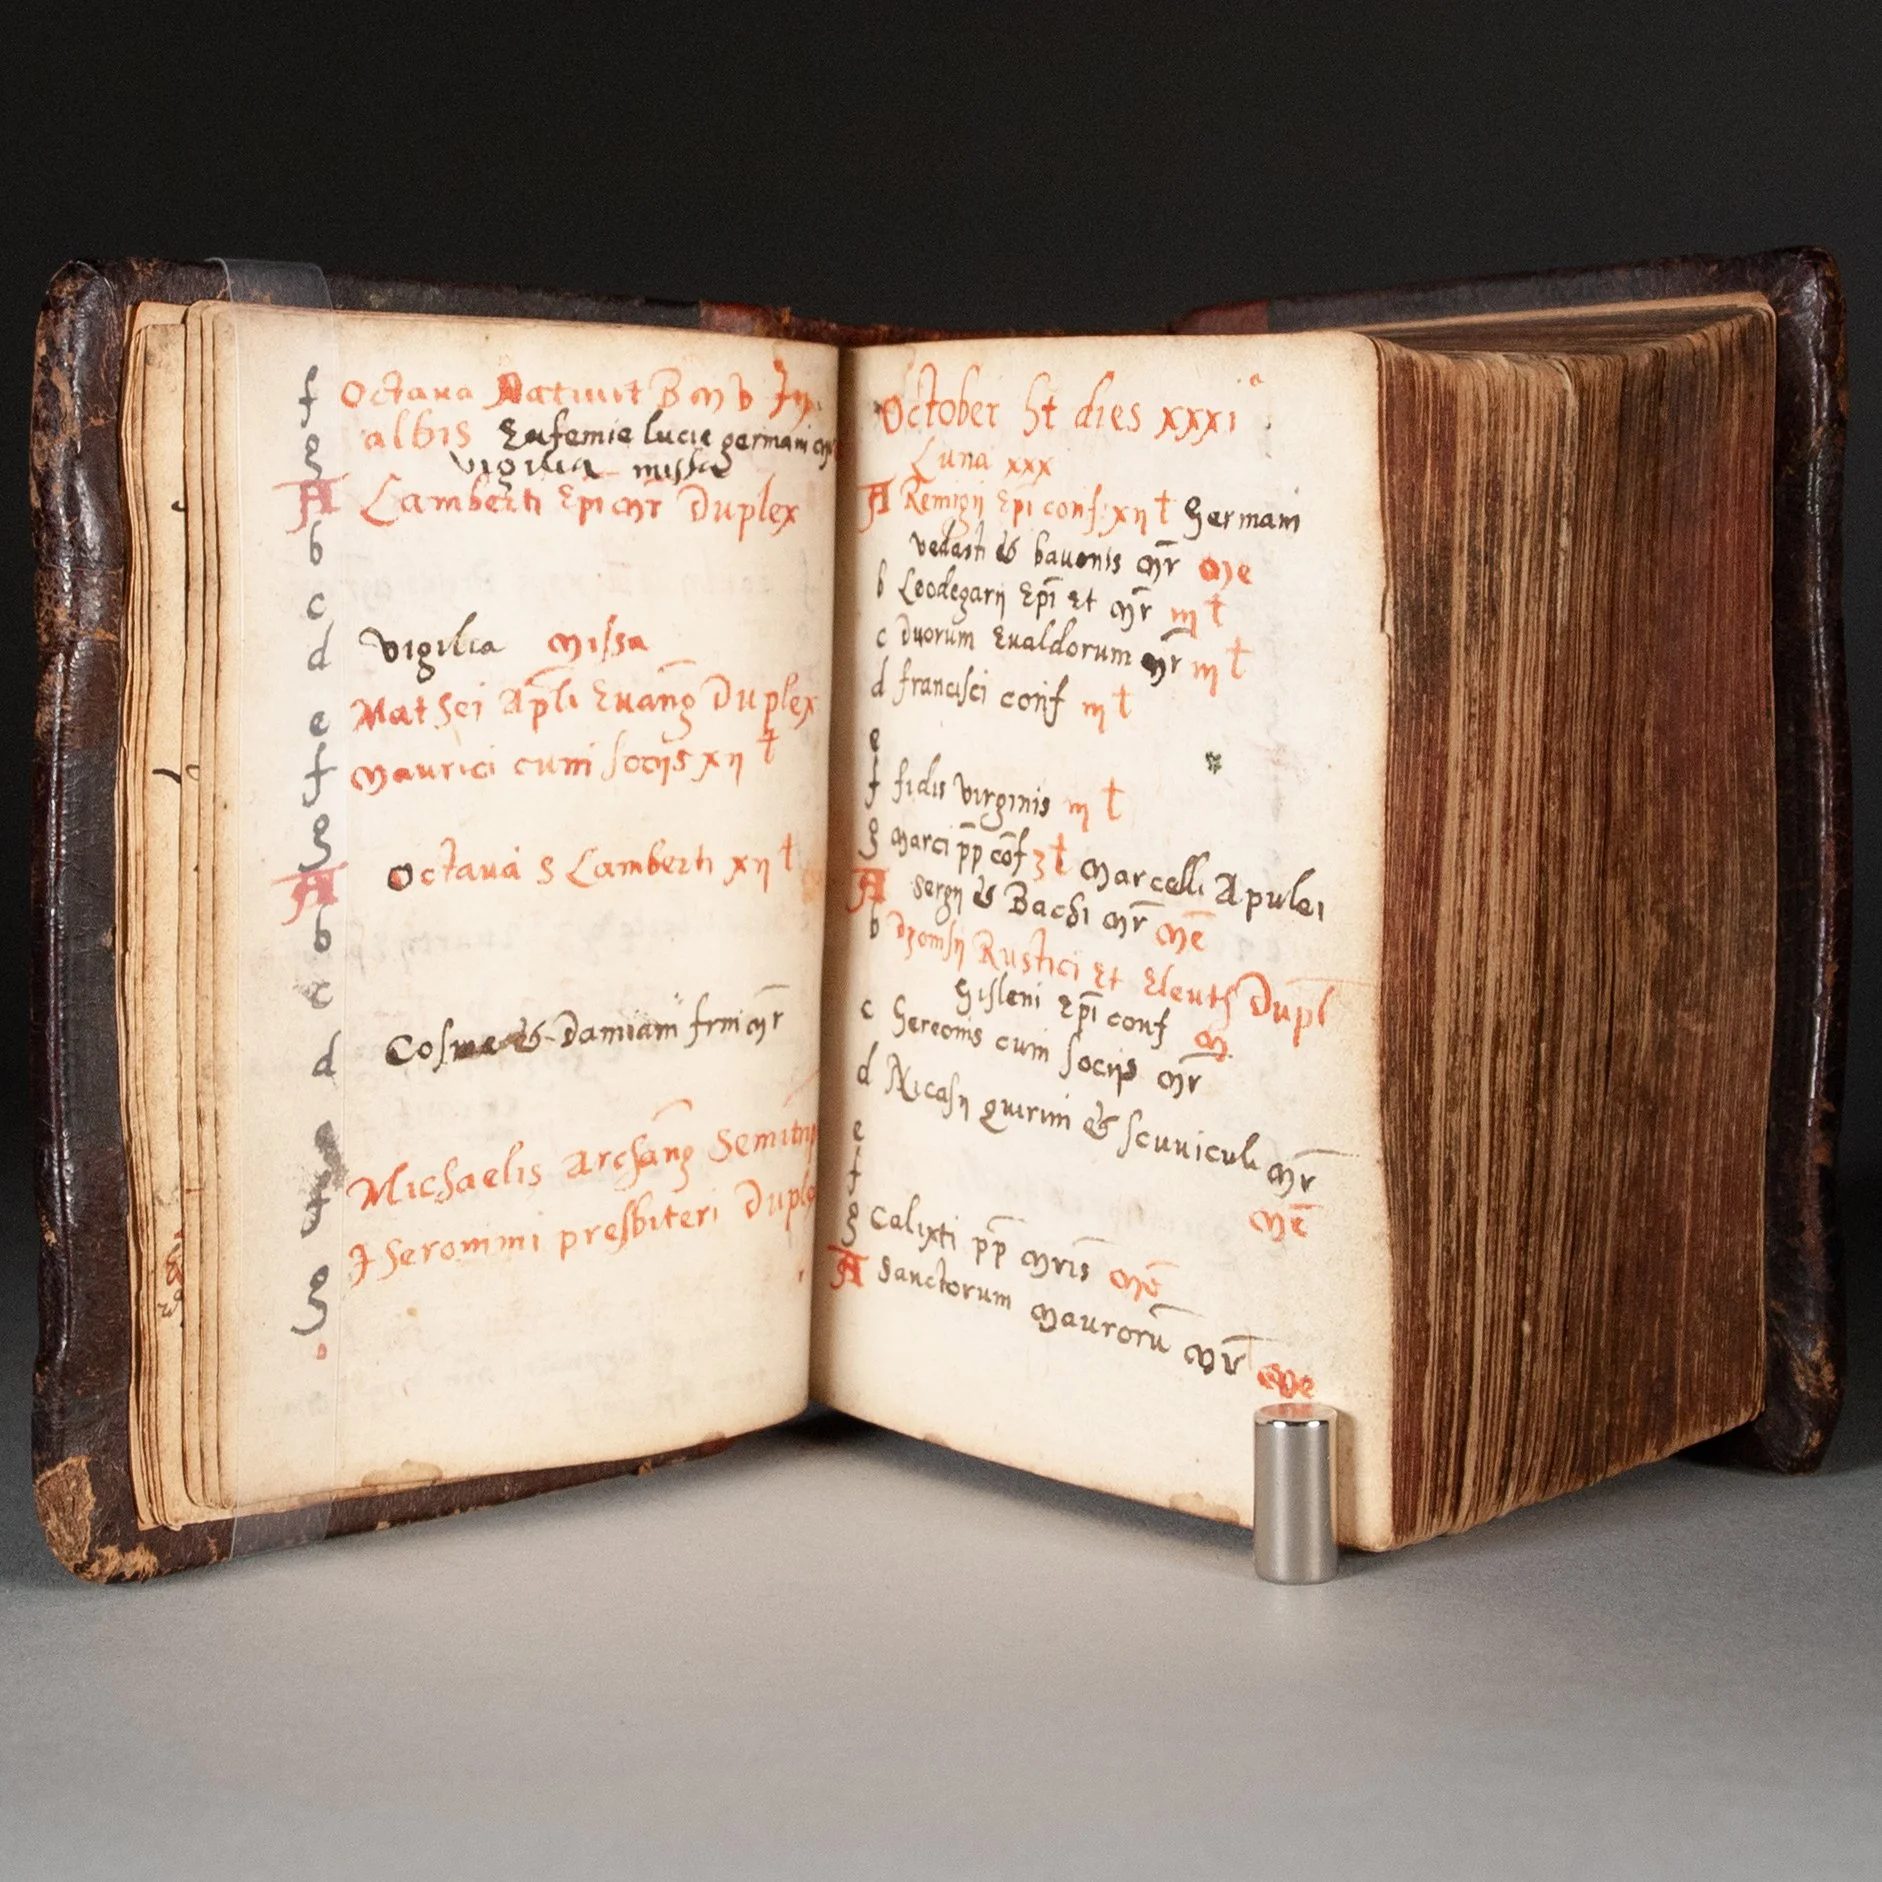 f Octaua Natiuit B M v In
g albis Eufemie lucie germani mr
vigilia missa
A Lamberti Epi mr Duplex
b
c
d vigilia missa
e Mathei Apli Euang Duplex
f maurici cum socijs xij t
g
A Octaua S Lamberti xij t
b
c
d Cosme & Damiani frm mr
e
f Michaelis Archang Semitrip
Iheronimi presbiteri Duplex
g
October ht dies xxxi
Luna xxx
A Remigij Epi conf: xij t Germani
vedasti & bauonis mr me
b Leodegarij Epi et mr m t
c duorum Eualdorum mr m t
d francisci conf m t
e
f fidis virginis m t
g Marci pp cof 3 t Marcelli Apulei
A Sergij & Bachi mr me
b Dyonisij Rustici et Eleuth Dupl
Gisleni Epi conf m
c Gereonis cum socijs mr
d Nicasij quirini & scuuiculi mr
e me
f
g Calixti pp mris me
A Sanctorum mauroru mr me